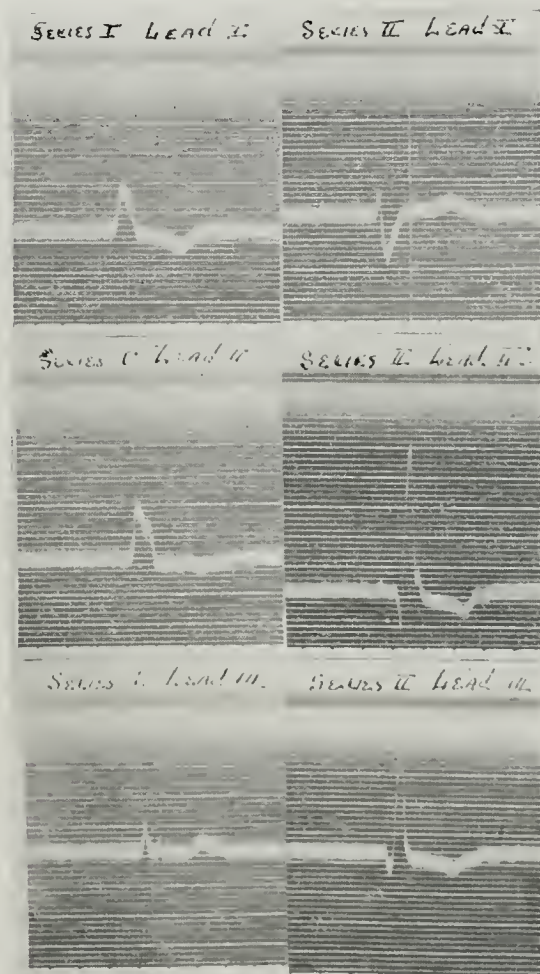 SERIES I LEAD I
SERIES II LEAD I
SERIES I LEAD II
SERIES II LEAD II
SERIES I LEAD III
SERIES II LEAD III